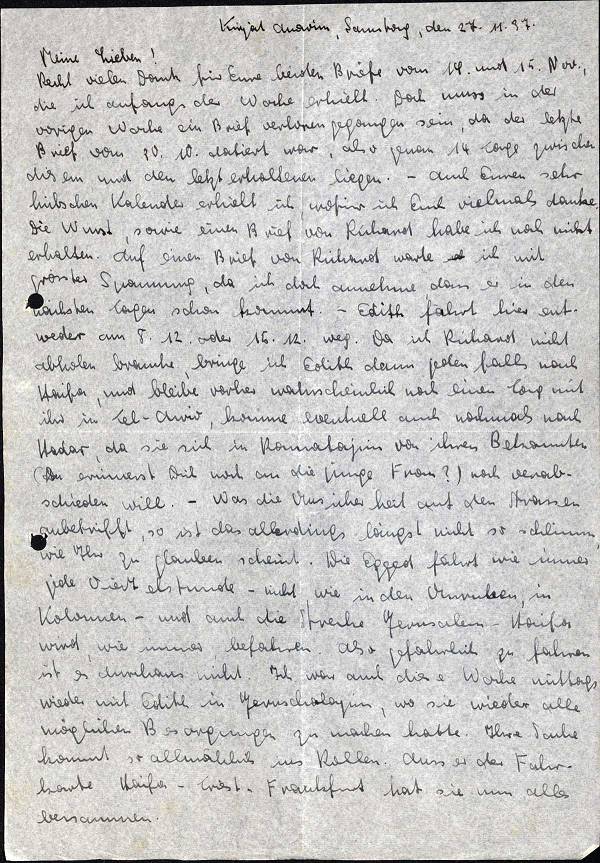 Kirjat Anavim, Samstag, den 27. 11. 37.
Meine Lieben!
Recht vielen Dank für Eure beiden Briefe vom 14. und 15. Nov.,
die ich anfangs der Woche erhielt. Doch muss in der
vorigen Woche ein Brief verloren gegangen sein, da der letzte
Brief vom 30. 10. datiert war, also genau 14 Tage zwischen
diesem und den letzterhaltenen liegen. - Auch Euren sehr
hübschen Kalender erhielt ich, wofür ich Euch vielmals danke.
Die Wurst, sowie einen Brief von Richard habe ich noch nicht
erhalten. Auf einen Brief von Richard warte ich mit
grösster Spannung, da ich doch annehme dass er in den
nächsten Tagen schon kommt. - Edith fährt hier ent-
weder am 8. 12. oder 15. 12. weg. Da ich Richard nicht
abholen brauche, bringe ich Edith dann jedenfalls nach
Haifa, und bleibe vorher wahrscheinlich noch einen Tag mit
ihr in Tel-Aviv, komme eventuell auch nochmals nach
Hadar, da sie sich in Ramatajim von ihren Bekannten
(Du erinnerst Dich noch an die junge Frau?) noch verab-
schieden will. - Was die Unsicherheit auf den Strassen
anbetrifft, so ist das allerdings längst nicht so schlimm,
wie Ihr zu glauben scheint. Die Egged fährt wie immer
jede Viertelstunde - nicht wie in den Unruhen, in
Kolonnen - und auch die Strecke Jerusalem - Haifa
wird, wie immer, befahren. Also gefährlich zu fahren
ist es durchaus nicht. Ich war auch diese Woche mittags
wieder mit Edith in Jeruscholajim, wo sie wieder alle
möglichen Besorgungen zu machen hatte. Ihre Sache
kommt so allmählich ins Rollen. Ausser der Fahr-
karte Haifa - Triest - Frankfurt hat sie nun alles
beisammen.